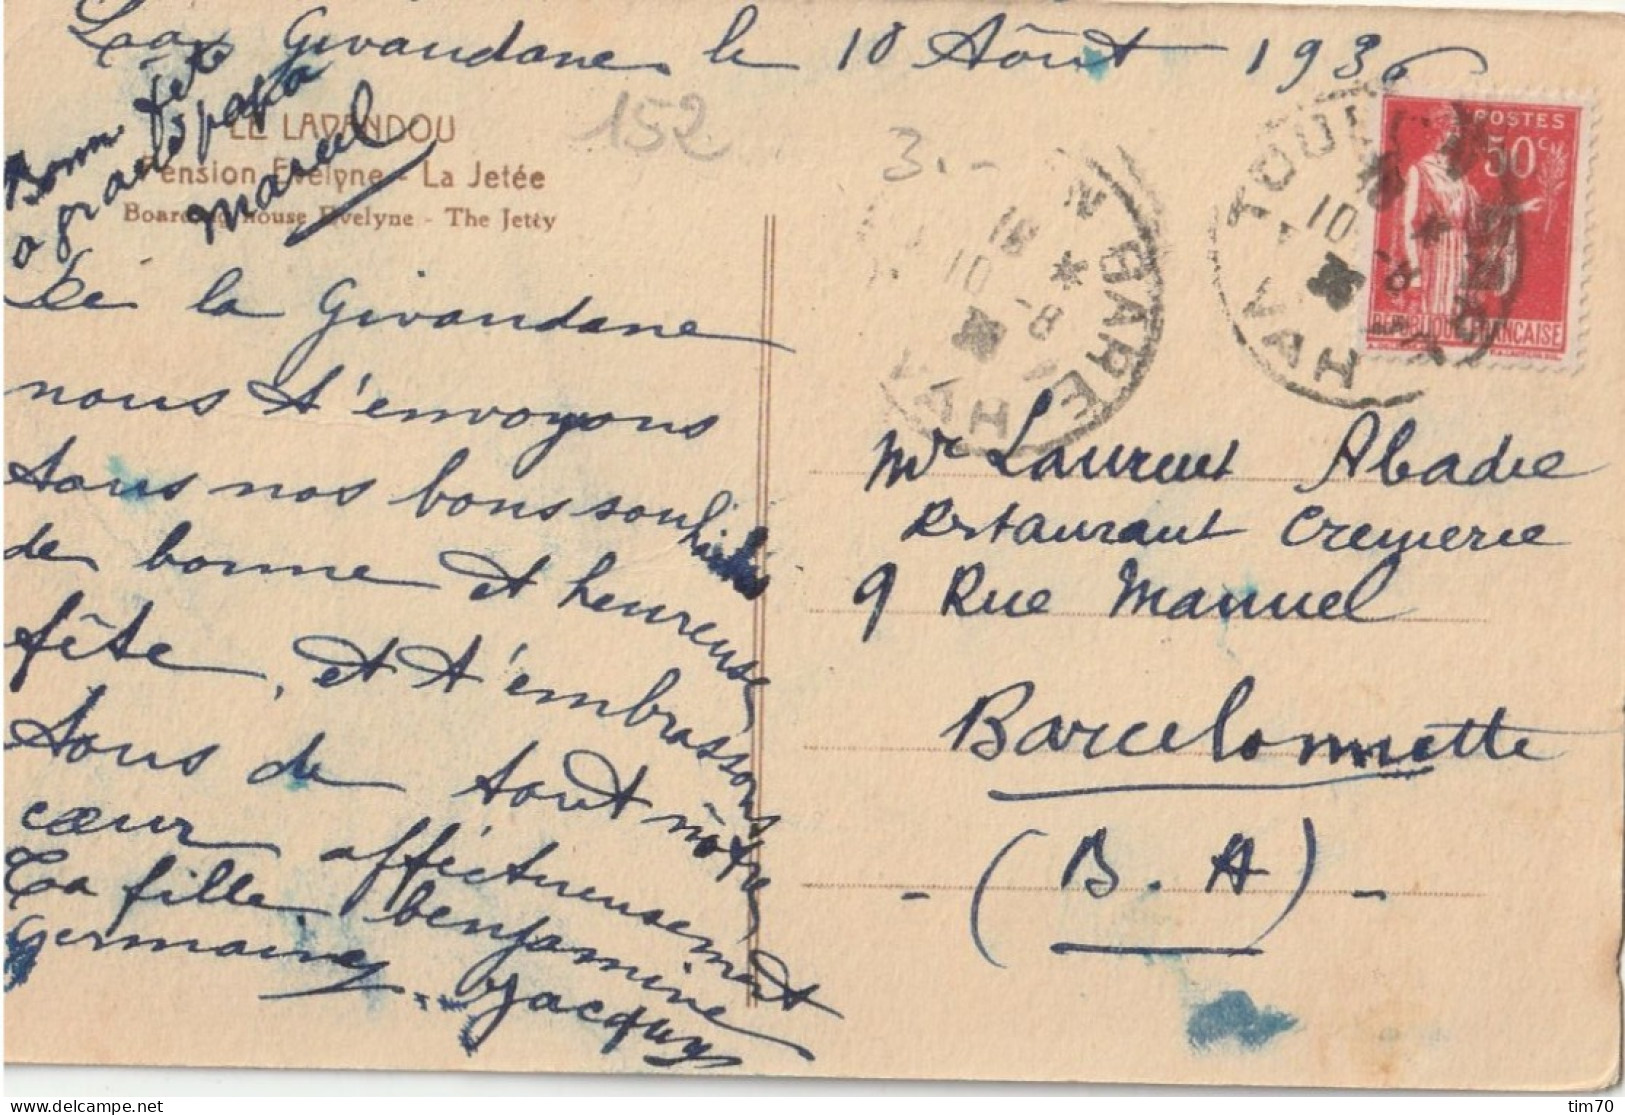 La Givaudane le 10 Aôut 1936
Bonne fete
a grand papa
Marcel
LE LAVANDOU
Pension Evelyne - La Jetée
Boarding house Evelyne - The Jetty
152
3.-
De la Givaudane
nous t'envoyons
tous nos bons souhaits
de bonne et heureuse
fête, et t'embrassons
tous de tout nôtre
cœur affectueusement
Ta fille benjamine
Germaine. Jacquy
POSTES
50c
REPUBLIQUE FRANÇAISE
TOULON
VAR
10 - 8
GARE
VAR
18
10 - 8
Mr Laurent Abadie
Restaurant Cremerie
9 Rue Manuel
Barcelonnette
- (B. A) -
delcampe.net
tim70